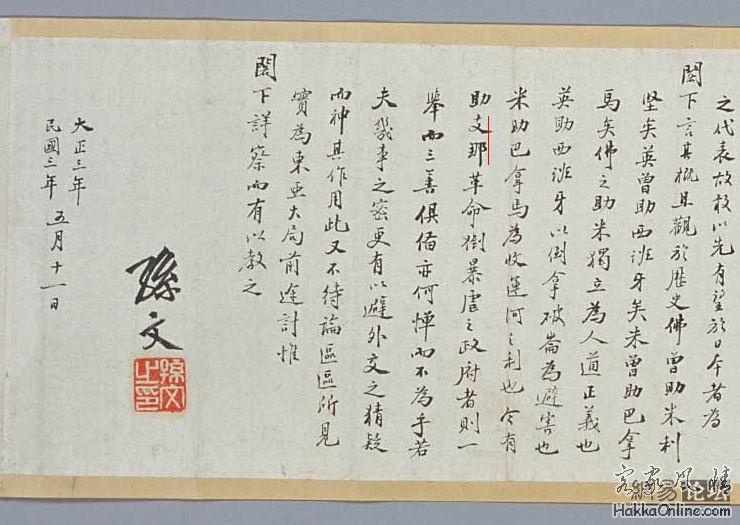 之代表故敢以先有望於日本者為
閣下言其概且觀於歷史佛曾助米利
堅矣英曾助西班牙矣米曾助巴拿
馬矣佛之助米獨立為人道正義也
英助西班牙以倒拿破崙為避害也
米助巴拿馬為收運河之利也今有
助支那革命倒暴虐之政府者則一
舉而三善俱備亦何憚而不為乎若
夫幾事之密更有以避外交之猜疑
而神其作用此又不待論區區所見
實為東亞大局前途計惟
閣下詳察而有以教之
孫文
孫文之印
大正三年
民國三年 五月十一日
客家風情
论坛
HakkaOnline.com